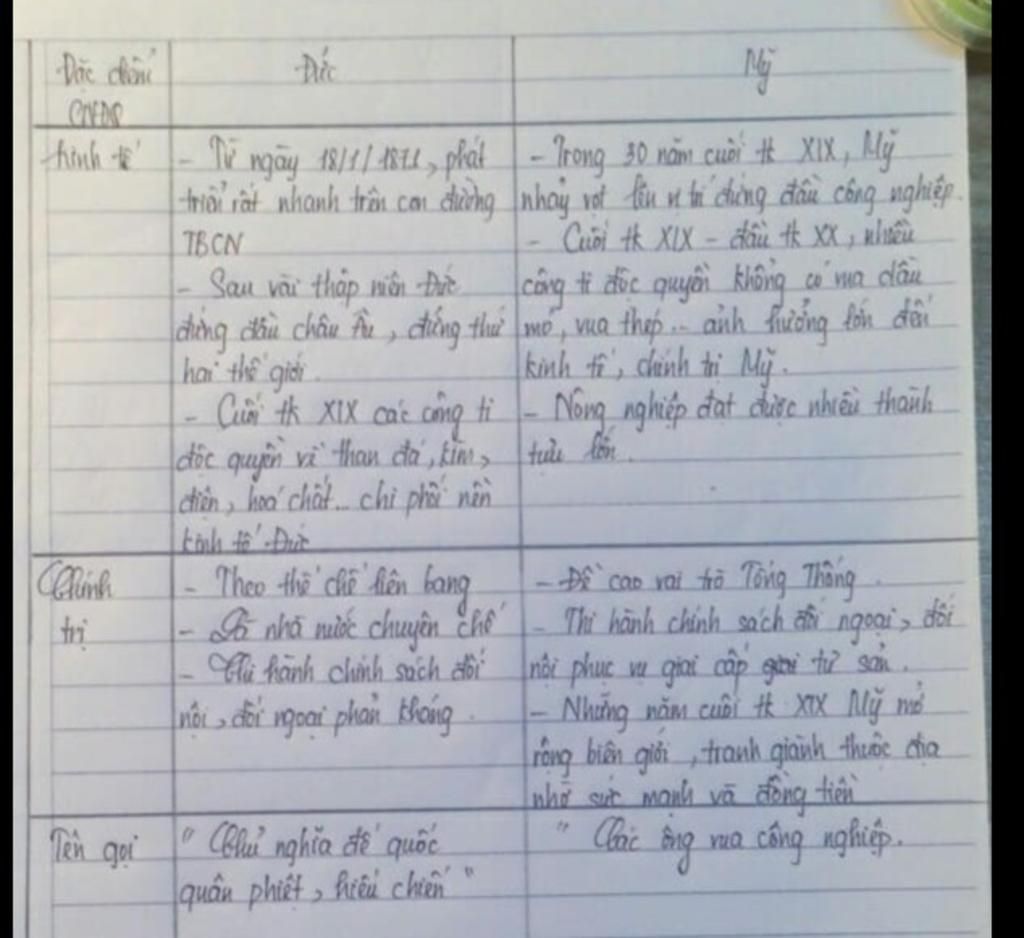 Đặc điểm
CNĐQ
Đức
Mỹ
Kinh tế
- Từ ngày 18/1/1871, phát
triển rất nhanh trên con đường
TBCN
- Sau vài thập niên Đức
đứng đầu châu Âu, đứng thứ
hai thế giới.
- Cuối tk XIX các công ti
độc quyền về than đá, kim,
điện, hoá chất... chi phối nền
kinh tế Đức
- Trong 30 năm cuối tk XIX, Mỹ
nhảy vọt lên vị trí đứng đầu công nghiệp.
- Cuối tk XIX - đầu tk XX, nhiều
công ti độc quyền khổng có vua dầu
mỏ, vua thép... ảnh hưởng lớn đến
kinh tế, chính trị Mỹ.
- Nông nghiệp đạt được nhiều thành
tựu lớn.
Chính
trị
- Theo thể chế liên bang
- Là nhà nước chuyên chế
- Thi hành chính sách đối
nội, đối ngoại phản kháng.
- Đề cao vai trò Tổng Thống.
- Thi hành chính sách đối ngoại, đối
nội phục vụ giai cấp tư sản.
- Những năm cuối tk XIX Mỹ mở
rộng biên giới, tranh giành thuộc địa
nhờ sức mạnh và đồng tiền
Tên gọi
" Chủ nghĩa đế quốc
quân phiệt, hiếu chiến "
" Các ông vua công nghiệp.